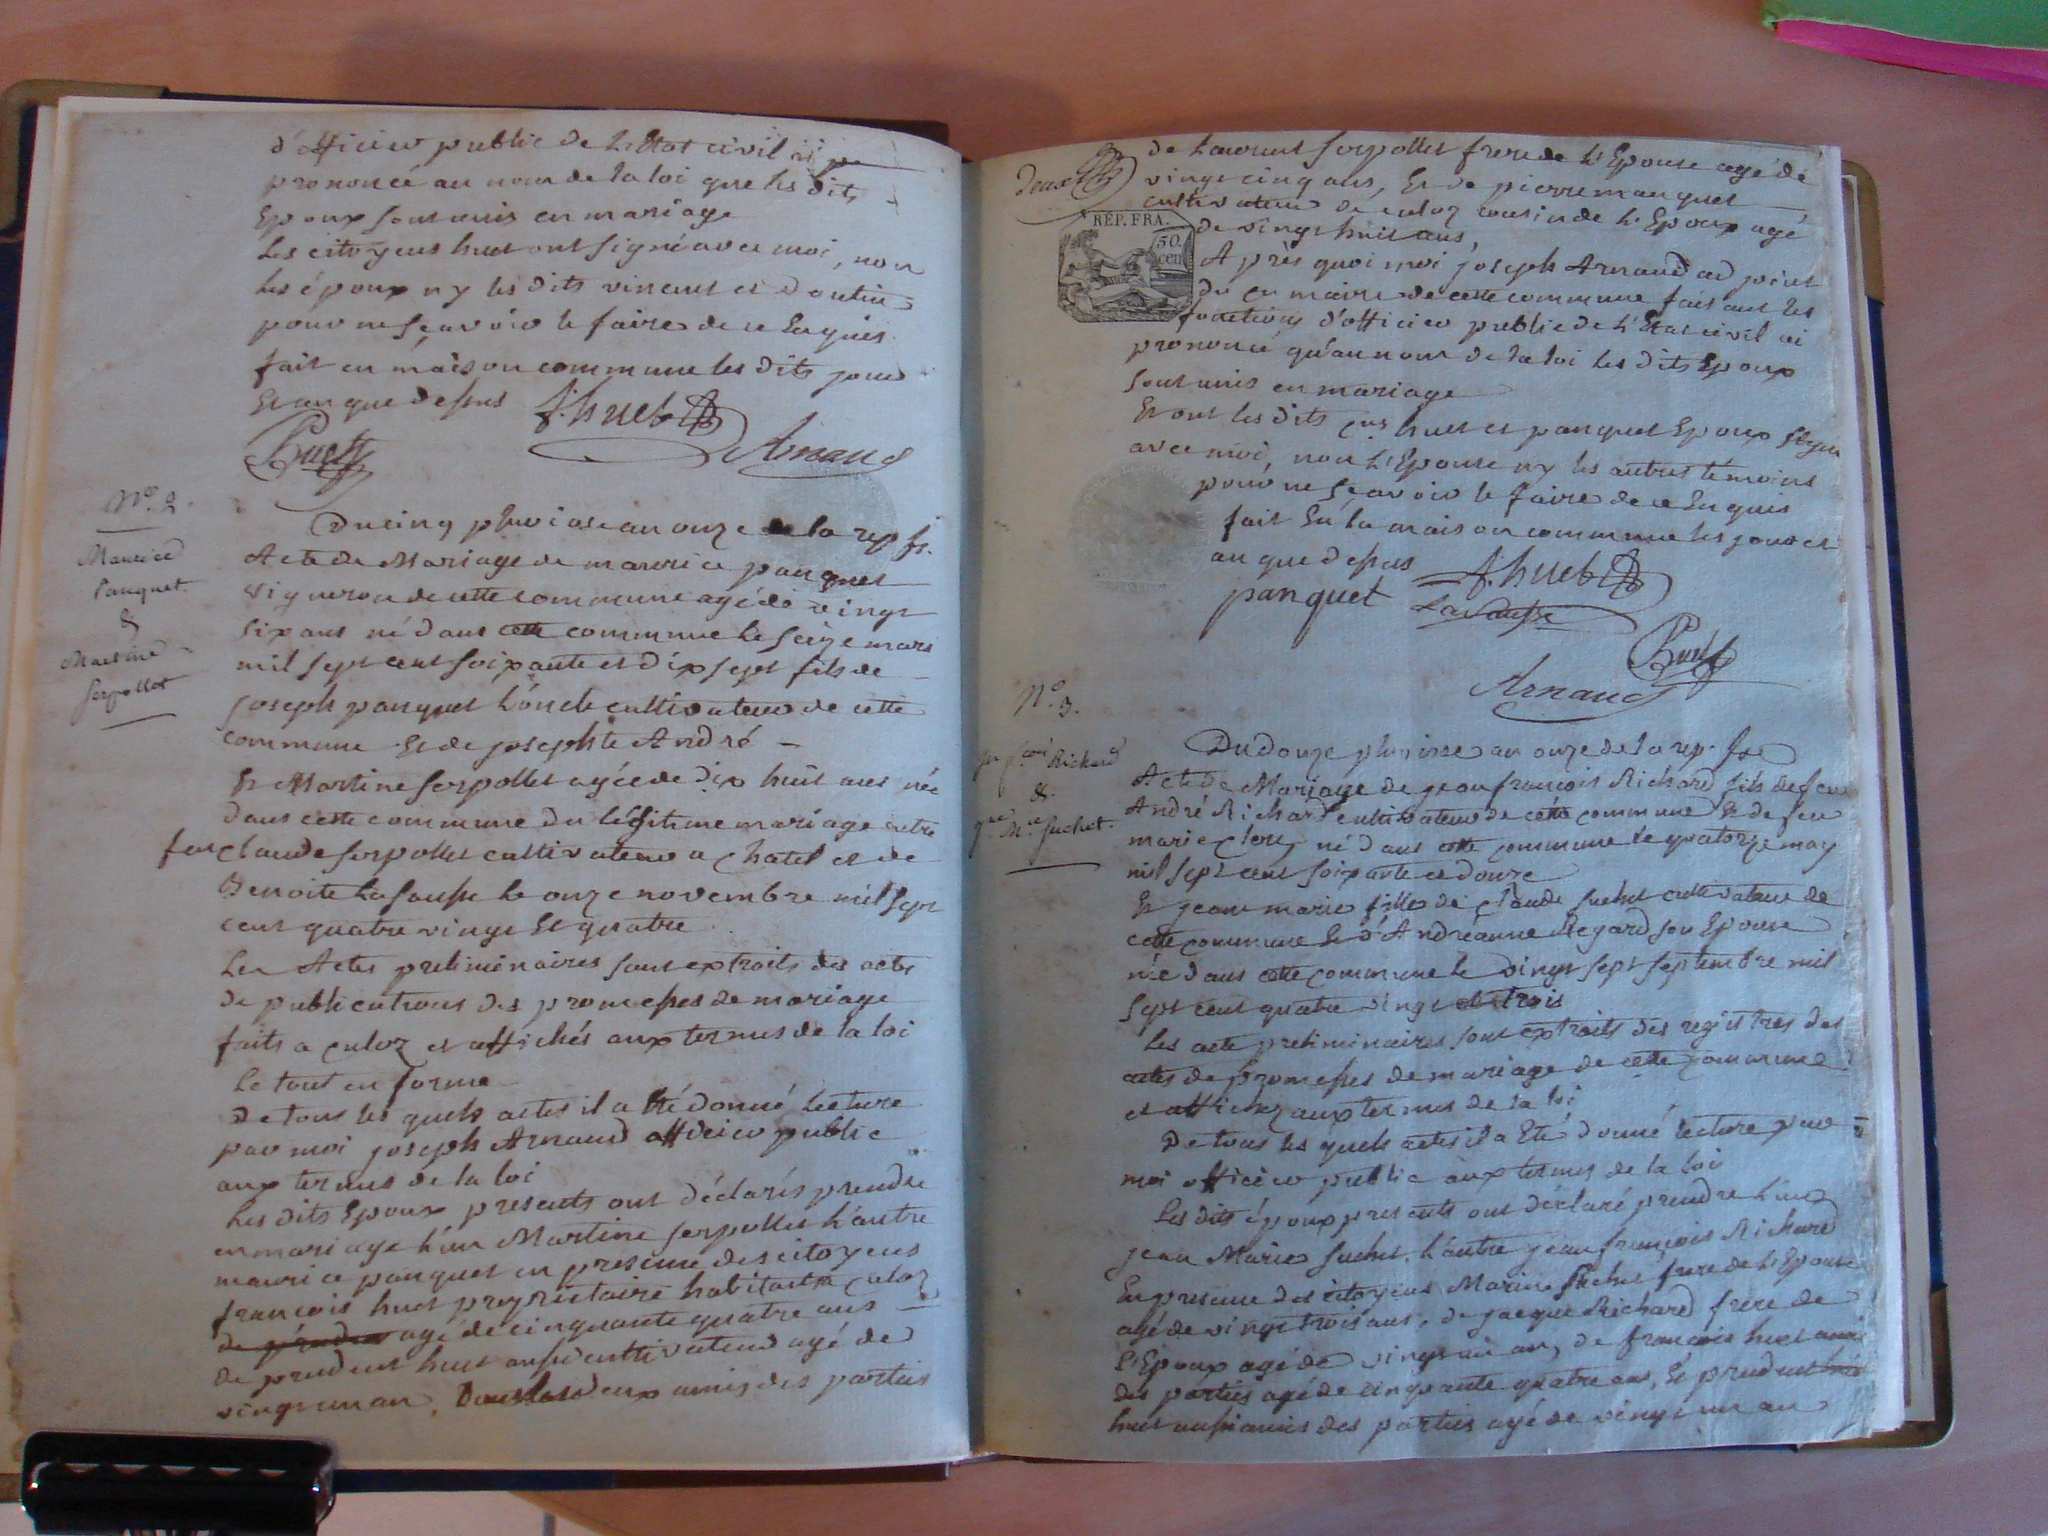 d'officier public de L'Etat civil ai
prononcé au nom de la loi que les dits
Epoux sont unis en mariage
Les citoyens huet ont signé avec moi, non
les époux ny les dits vincent et
pour ne sçavoir le faire de ce Enquis
fait en maison commune les dits jour
Et an que dessus f. huet
Arnaud
N.º 2.
Maurice
Panquet
&
Martine
Serpollet
Du cinq pluviose an onze de la rep fr.
Acte de Mariage de maurice panquet
vigneron de cette commune agé de vingt
six ans né dans cette commune le seize mars
mil sept cent soixante et dix sept fils de
joseph panquet L'oncle cultivateur de cette
commune Et de josephte André
Et Martine Serpollet agée de dix huit ans née
dans cette commune du légitime mariage entre
feu claude serpollet cultivateur a chatel et de
Benoite Lasausse le onze novembre mil sept
cent quatre vingt Et quatre
Les Actes preliminaires sont extraits des actes
de publications des promesses de mariage
faits a culoz et affichés aux termes de la loi
Le tout en forme
De tous les quels actes il a Eté donné Lecture
par moi joseph Arnaud officier public
aux termes de la loi
Les dits Epoux presents ont déclarés prendre
en mariage L'un Martine serpollet L'autre
maurice panquet en presence des citoyens
françois huet proprietaire habitant a culoz
agé de cinquante quatre ans
de prudent huet aussi cultivateur agé de
vingt un an, deux amis des parties
deux
de Laurent serpollet frere de L'Epouse agé de
vingt cinq ans, Et de pierre manquet
cultivateur de culoz cousin de L'Epoux agé
de vingt huit ans,
RÉP. FRA.
50
cen
Après quoi moi joseph Arnaud adjoint
du maire de cette commune faisant les
fonctions d'officier public de L'Etat civil ai
prononcé qu'au nom de la loi les dits Epoux
sont unis en mariage
Et ont les dits huet et panquet Epoux signé
avec moi, non L'Epouse ny les autres témoins
pour ne sçavoir le faire de ce Enquis
fait En la maison commune les jour et
an que dessus f. huet
panquet Lasausse
Arnaud
N.º 3.
Richard
&
M.ie suchet.
Du douze pluviose an onze de la rep. fse
Acte de Mariage de jean françois Richard fils de feu
André Richard cultivateur de cette commune Et de feu
marie clerc, né dans cette commune le quatorze may
mil sept cent soixante et douze
Et jeane marie fille de claude suchet cultivateur de
cette commune Et d'Andréanne Regard son Epouse
née dans cette commune le vingt sept septembre mil
sept cent quatre vingt et trois
Les acte preliminaires sont extraits des registres des
actes de promesses de mariage de cette commune
et affichez aux termes de la loi
De tous les quels actes il a Eté donné lecture par
moi officier public aux termes de la loi
Les dits époux presents ont déclaré prendre L'un
jean Marie suchet, L'autre jean françois Richard
En presence des citoyens Marin suchet frere de L'Epouse
agé de vingt trois ans, de jacque Richard frere de
L'Epoux agé de vingt un an, de françois huet amis
des parties agé de cinquante quatre ans, Et prudent
huet aussi amis des parties agé de vingt un an